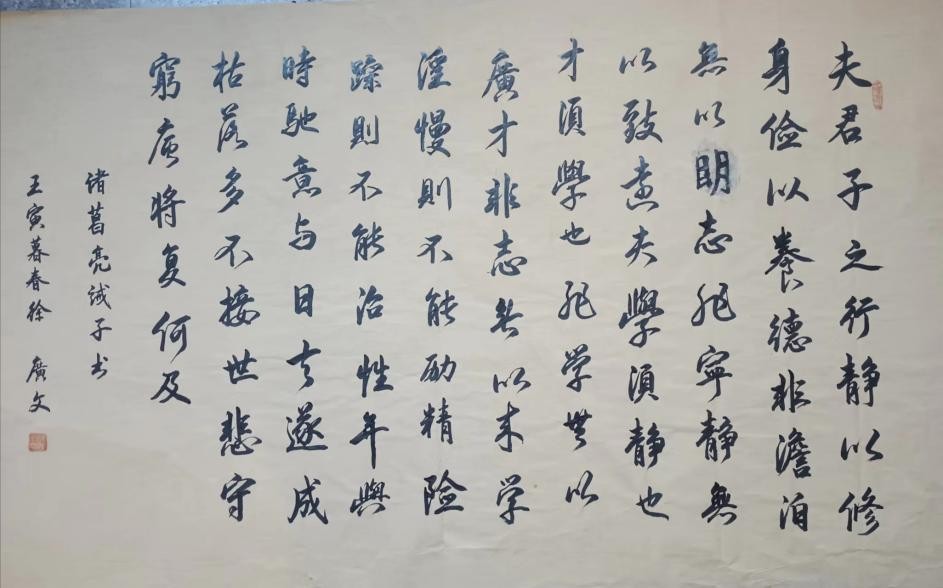 夫君子之行静以修
身俭以養德非澹泊
無以明志非寧静無
以致遠夫學須静也
才須學也非学無以
廣才非志無以成学
淫慢則不能励精险
躁則不能治性年與
時馳意与日去遂成
枯落多不接世悲守
窮庐将复何及
诸葛亮诫子书
壬寅暮春徐廣文